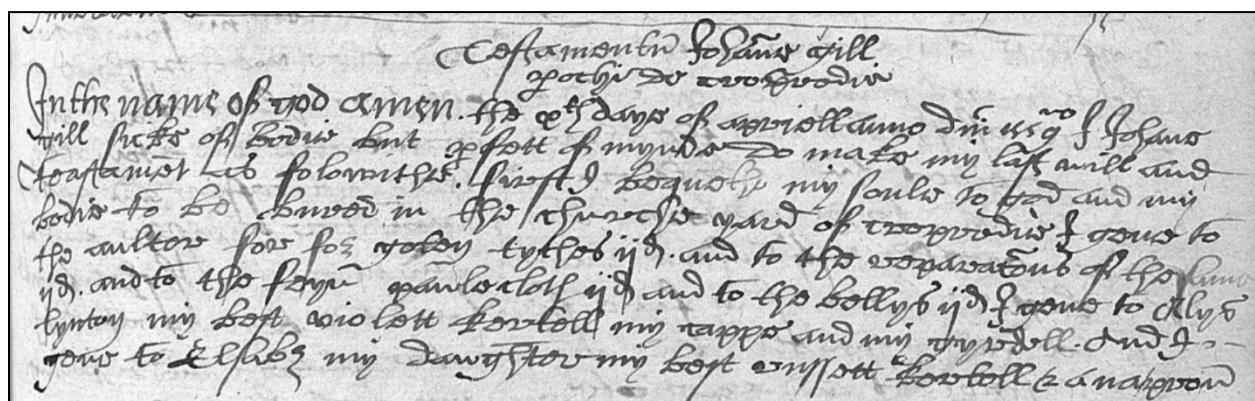 Testamentū Johāne gill
pochie de croxrodie
In the name of god amen. the xth daye of apriell anno dm̄ I Johane
gill sicke of bodie but pfett of mynde do make my last will and
testamēt as folowithe. first I bequeth my soule to god and my
bodie to be buried in the churche yard of I geve to
the aultor for forgoten tythes ijd. and to the reparatōns of the same
ijd. and to the pawlecloth ijd and to the bellys ijd I geve to Alys
lynton my best violett kertell my cappe and my gyrdell. And I
geve to Elsabz my daughter my best russett kertell & a naprou̅